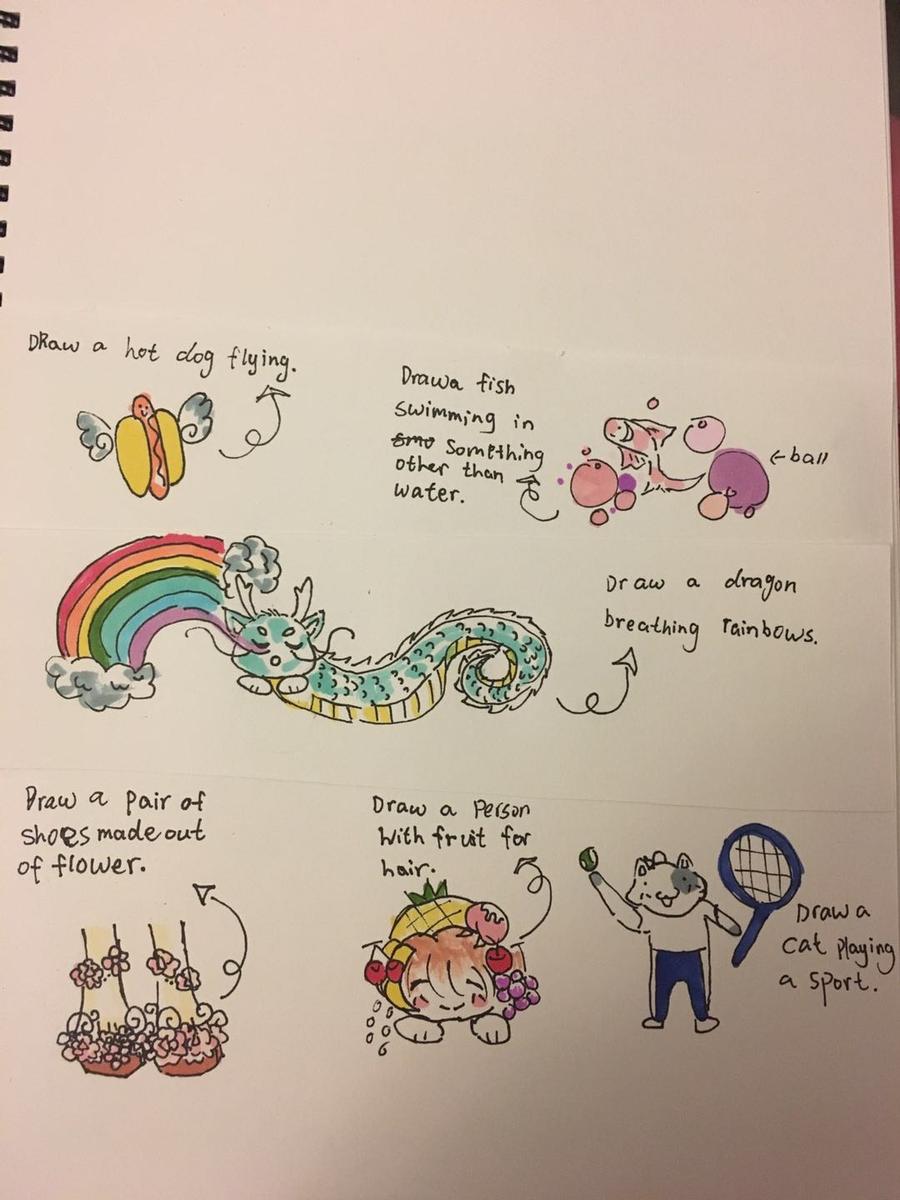 DRaw a hot dog flying.
Drawa fish
swimming in
smo something
other than
water.
←ball
Draw a dragon
breathing rainbows.
Draw a pair of
shoes made out
of flower.
Draw a person
With fruit for
hair.
Draw a
cat playing
a sport.